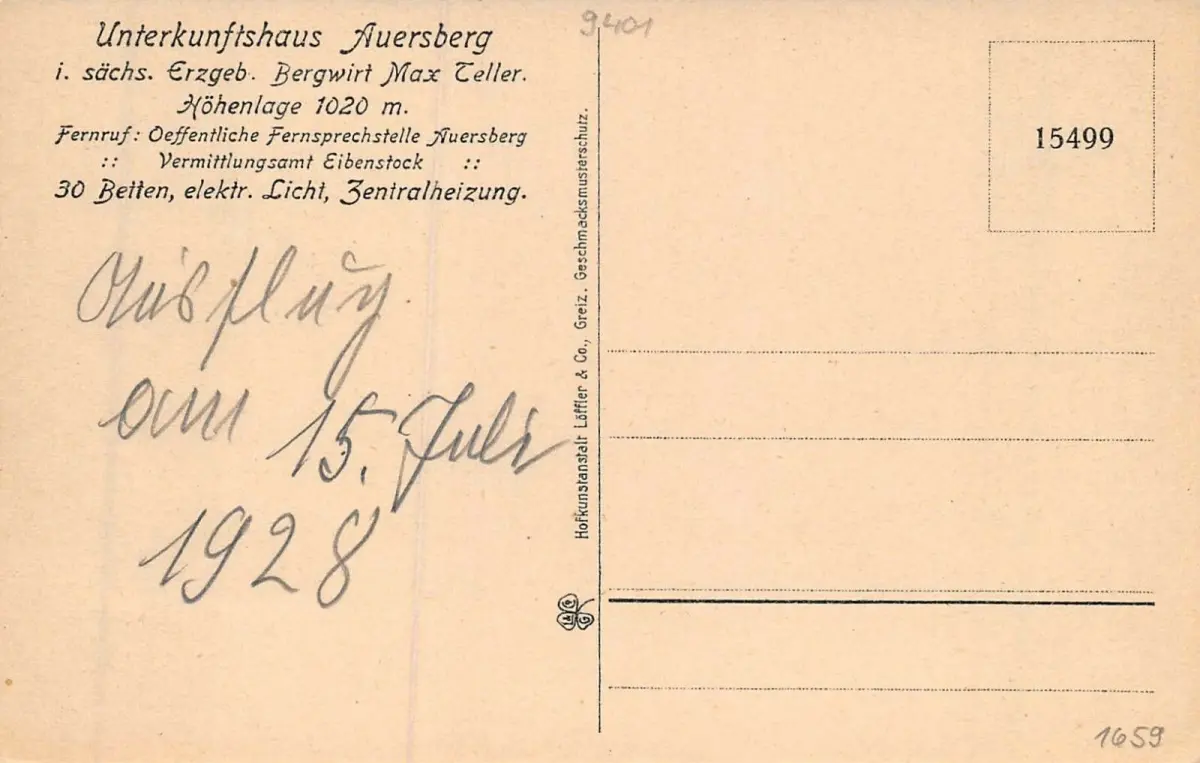 Unterkunftshaus Auersberg
i. sächs. Erzgeb. Bergwirt Max Teller.
Höhenlage 1020 m.
Fernruf: Oeffentliche Fernsprechstelle Auersberg
:: Vermittlungsamt Eibenstock ::
30 Betten, elektr. Licht, Zentralheizung.
Ausflug
am 15. Juli
1928
Hofkunstanstalt Löffler & Co., Greiz. Geschmacksmusterschutz.
9401
15499
1659